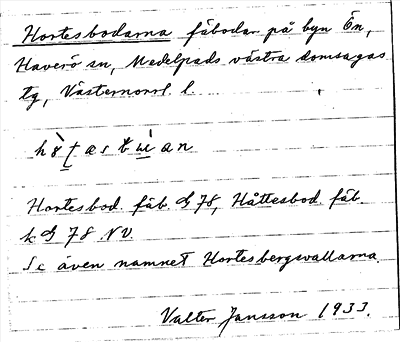 Hortesbodarna fäbodar på byn Ön,
Haverö sn, Medelpads västra domsagas
tg, Västernorrl. l.
Hortesbod. fäb. G 78, Håttesbod fäb.
k G 78 NV.
Se även namnet Hortesbergsvallarna.
Valter Jansson 1933.